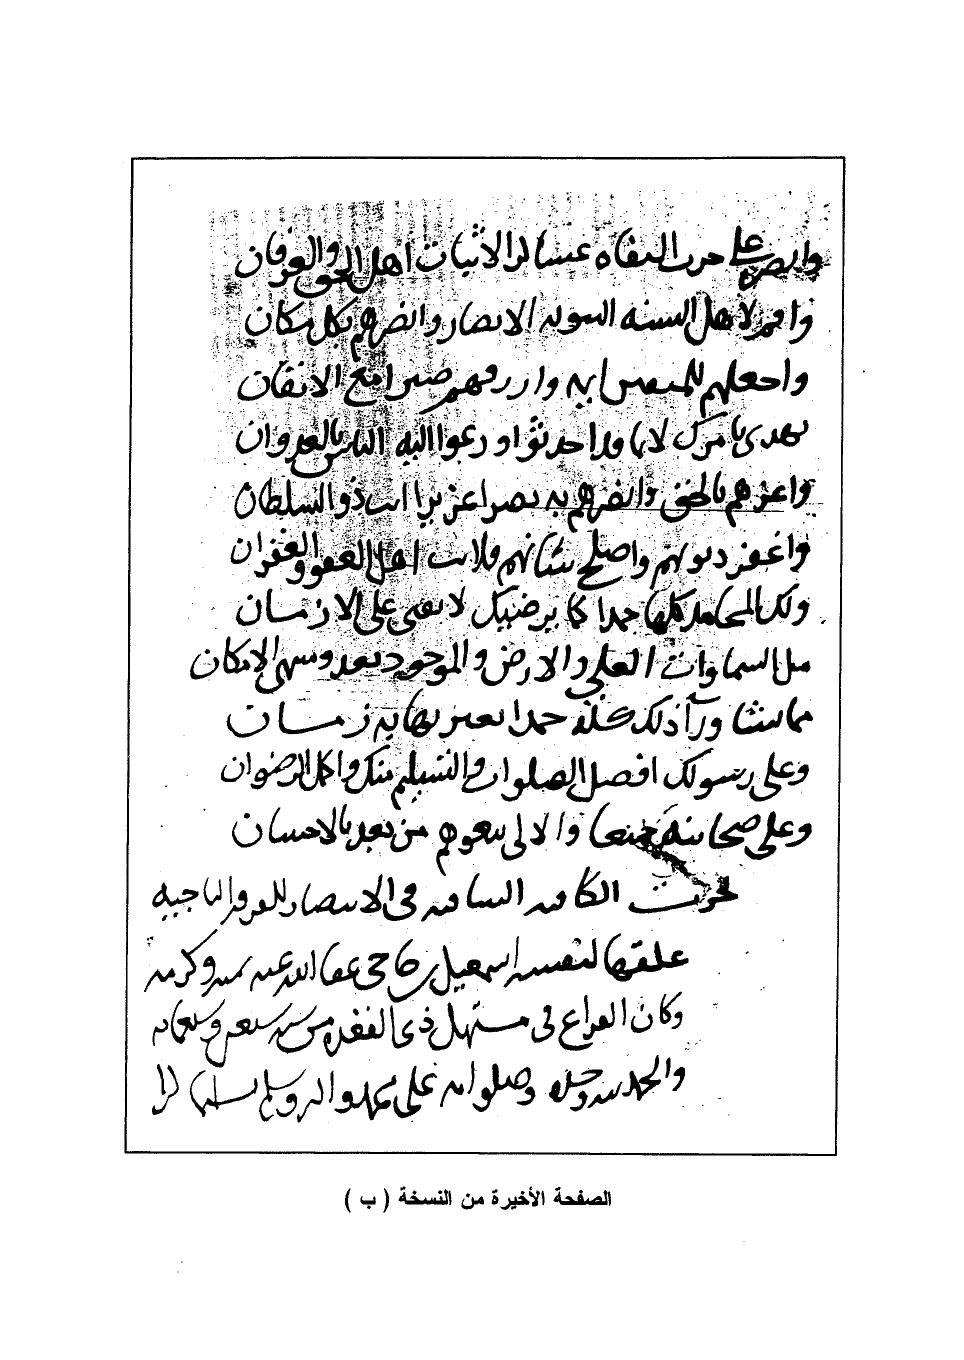 وانصره على حزب النفاة عساكر الاثبات اهل الحق والعرفان
واقم لاهل السنه النبويه الانصار وانصرهم بكل مكان
واجعلهم للمتقين ايمه وارزقهم صبرا مع الايقان
تهدي بامرك لا بما قد احدثوا ودعوا اليه الناس بالعدوان
واعزهم بالحق وانصرهم به نصرا عزيزا انت ذو السلطان
واغفر ذنوبهم واصلح شانهم فلانت اهل العفو والغفران
ولك المحامد كلها حمدا كما يرضيك لا يفنى على الازمان
مل السماوات العلى والارض والموجود بعد ومنتهى الامكان
مما تشا ورآ ذلك كله حمدا بغير نهايه زمان
وعلى رسولك افضل الصلوات والتسليم منك واكمل الرضوان
وعلى صحابته جميعا والالى تبعوهم من بعد بالاحسان
نجزت الكافيه الشافيه في الانتصار للفرقه الناجيه
علقها لنفسه اسمعيل بن حاجي عفا الله عنه بمنه وكرمه
وكان الفراغ في مستهل ذي القعده من سنه وسبعمايه
والحمد لله وحده وصلواته على محمد واله وسلم تسليما كثيرا
الصفحة الأخيرة من النسخة ( ب )